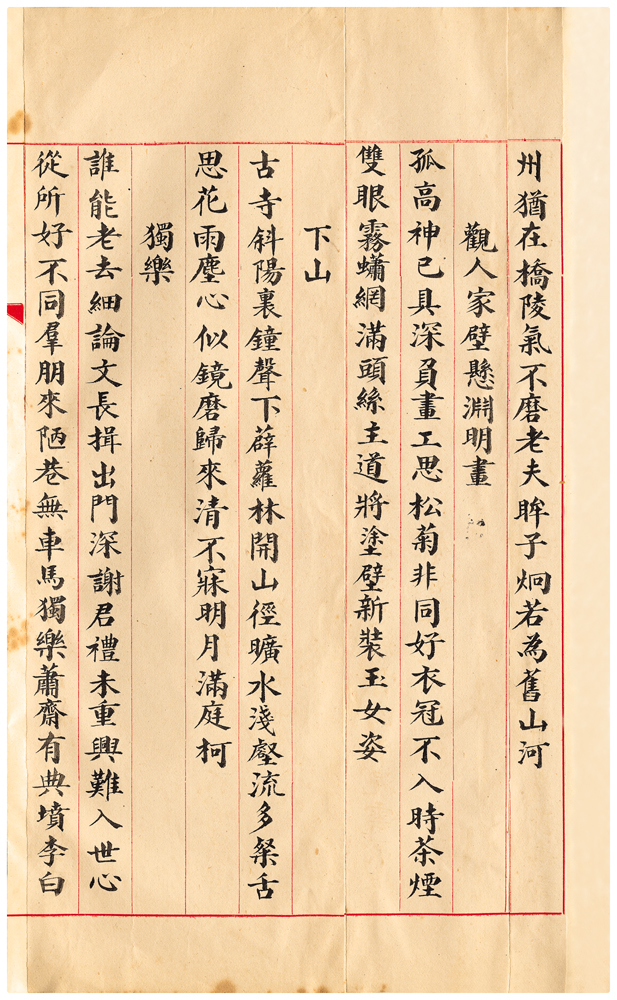 州猶在橋陵氣不磨老夫眸子炯若為舊山河
觀人家壁懸淵明畫
孤高神已具深負畫工思松菊非同好衣冠不入時茶煙
雙眼霧蠨網滿頭絲主道將塗壁新裝玉女姿
下山
古寺斜陽裏鐘聲下薜蘿林開山徑曠水淺壑流多粲舌
思花雨塵心似鏡磨歸來清不寐明月滿庭柯
獨樂
誰能老去細論文長揖出門深謝君禮未重興難入世心
從所好不同羣朋來陋巷無車馬獨樂蕭齋有典墳李白